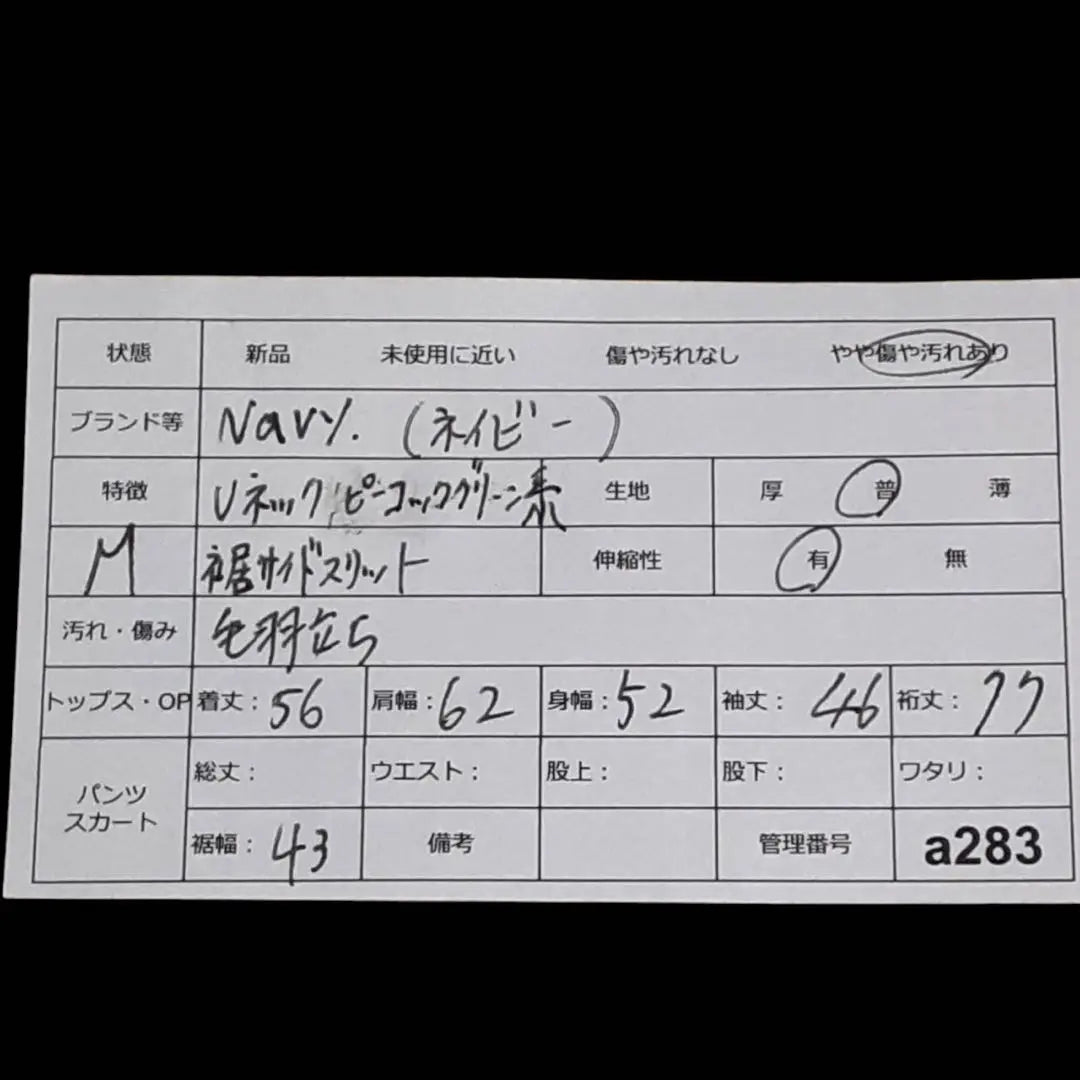 状態 新品 未使用に近い 傷や汚れなし やや傷や汚れあり
ブランド等 Navy. (ネイビー)
特徴 Uネック ピーコックグリーン系 生地 厚 普 薄
M 裾サイドスリット 伸縮性 有 無
汚れ・傷み 毛羽立ち
トップス・OP 着丈：56 肩幅：62 身幅：52 袖丈：46 裄丈：77
パンツ スカート 総丈： ウエスト： 股上： 股下： ワタリ：
裾幅：43 備考 管理番号 a283